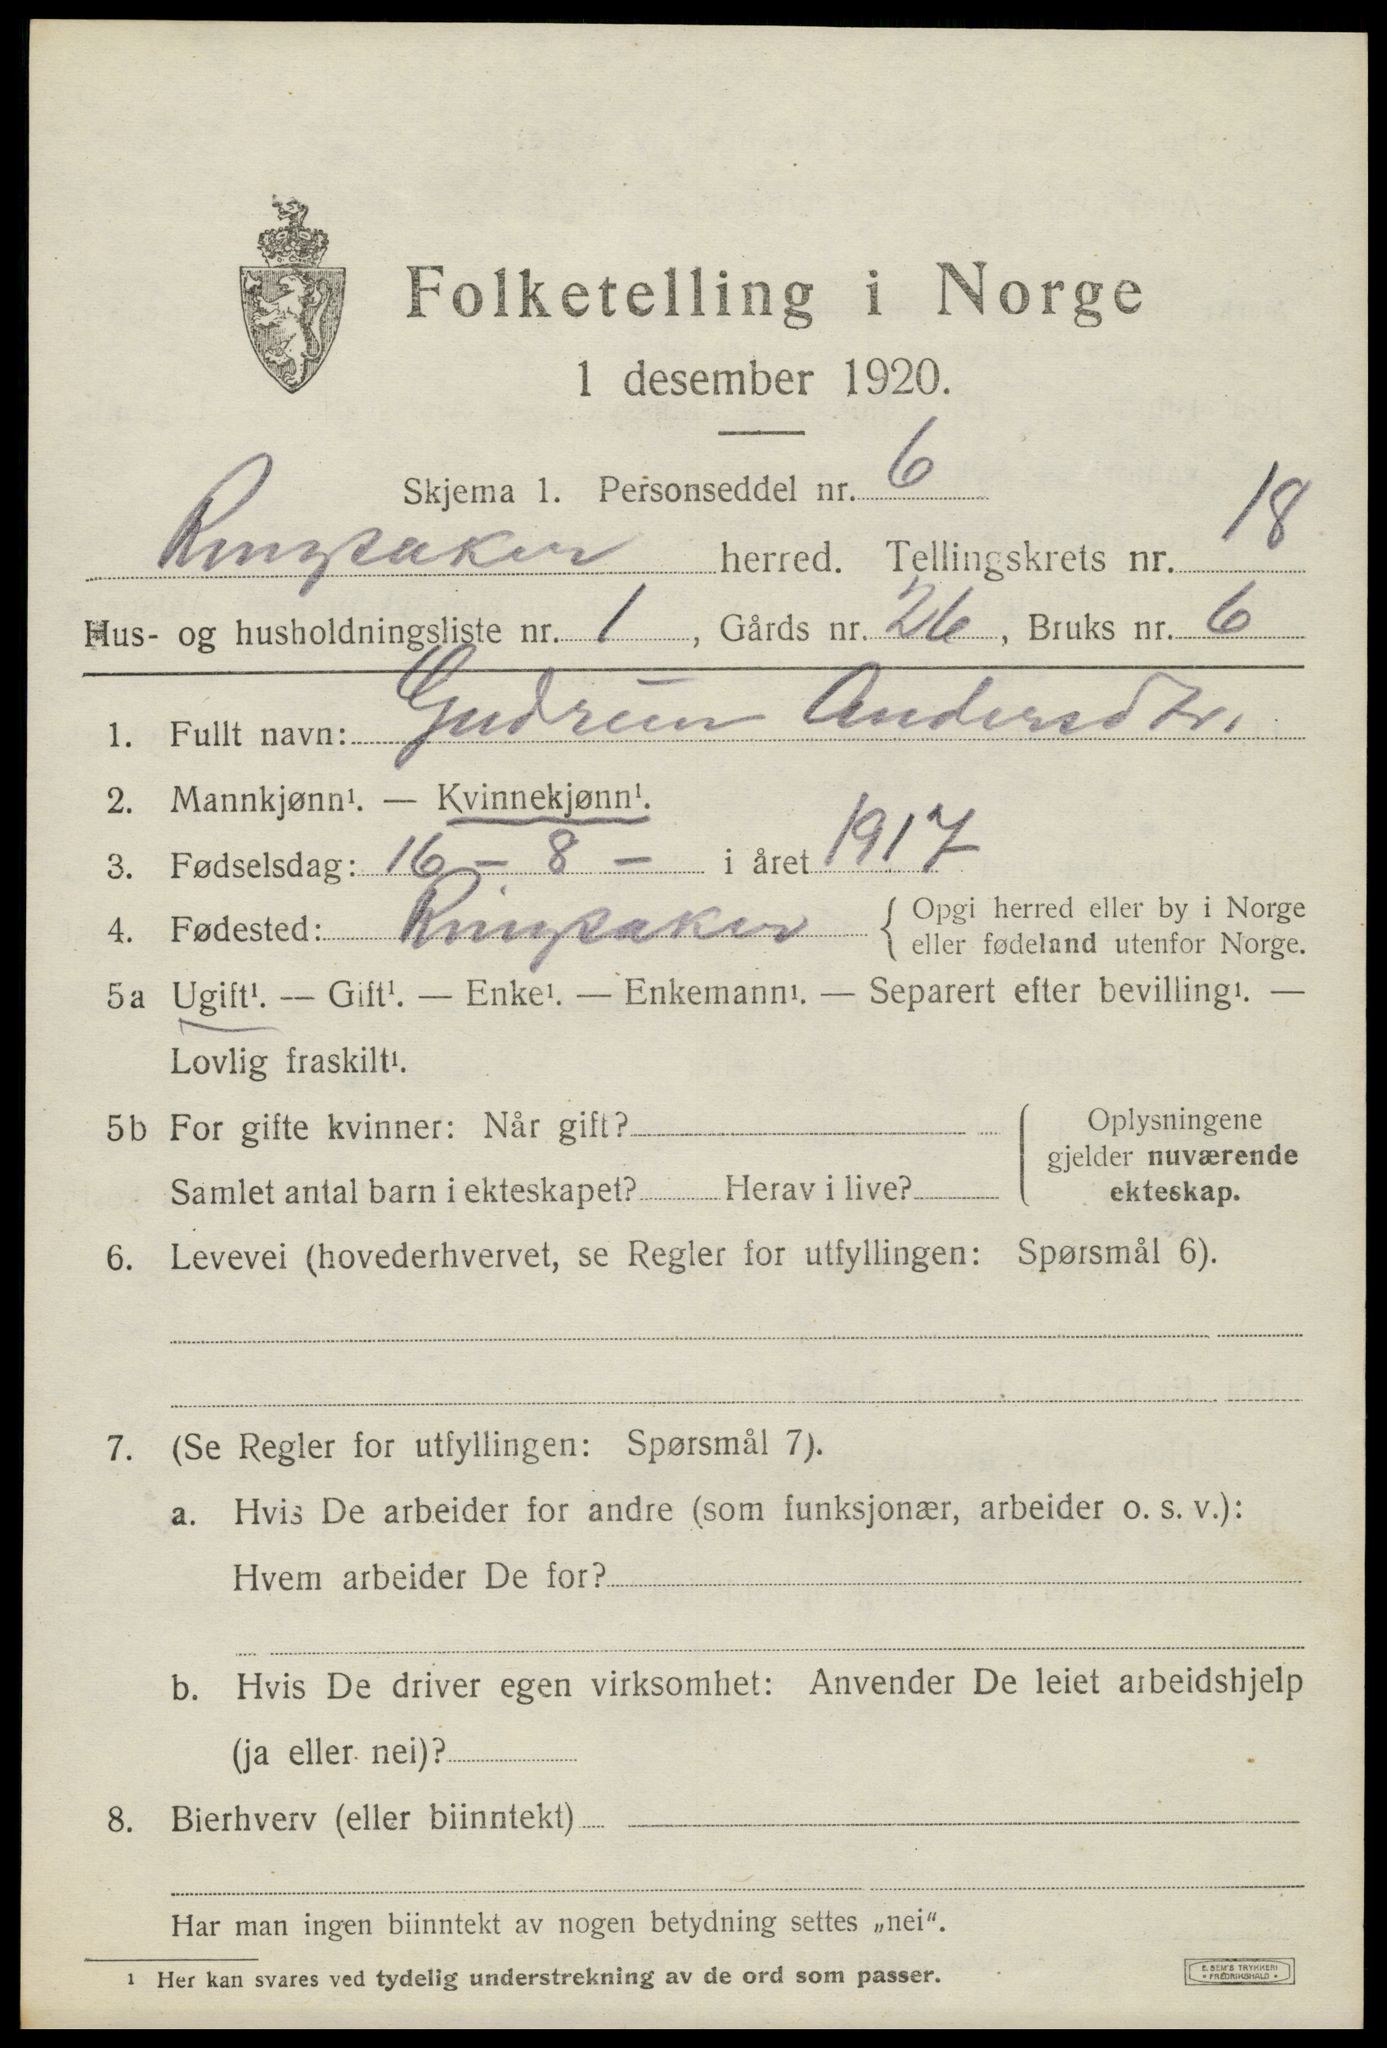 Folketelling i Norge
1 desember 1920.
Skjema 1. Personseddel nr. 6
Ringsaker herred. Tellingskrets nr. 18
Hus- og husholdningsliste nr. 1, Gårds nr. 26, Bruks nr. 6
1. Fullt navn: Gudrun Andersdtr.
2. Mannkjønn¹. — Kvinnekjønn¹.
3. Fødselsdag: 16 - 8 - i året 1917
4. Fødested: Ringsaker { Opgi herred eller by i Norge
eller fødeland utenfor Norge.
5a Ugift¹. — Gift¹. — Enke¹. — Enkemann¹. — Separert efter bevilling¹. —
Lovlig fraskilt¹.
5b For gifte kvinner: Når gift?
Samlet antal barn i ekteskapet? Herav i live?
Oplysningene
gjelder nuværende
ekteskap.
6. Levevei (hovederhvervet, se Regler for utfyllingen: Spørsmål 6).
7. (Se Regler for utfyllingen: Spørsmål 7).
a. Hvis De arbeider for andre (som funksjonær, arbeider o. s. v.):
Hvem arbeider De for?
b. Hvis De driver egen virksomhet: Anvender De leiet arbeidshjelp
(ja eller nei)?
8. Bierhverv (eller biinntekt)
Har man ingen biinntekt av nogen betydning settes „nei“.
¹ Her kan svares ved tydelig understrekning av de ord som passer.
E. SEM'S TRYKKERI
• FREDRIKSHALD •